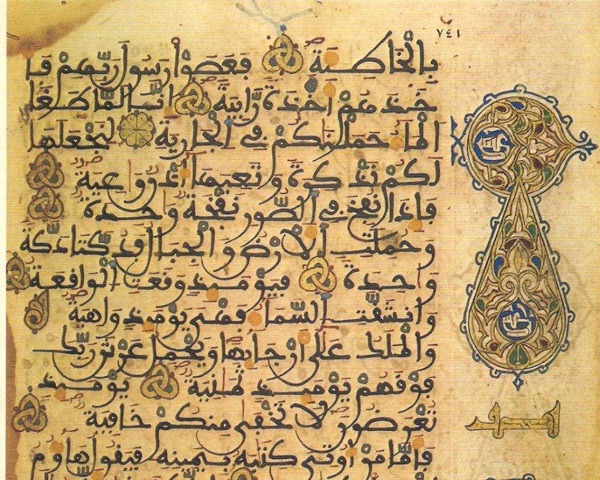 ٧٤١
بِالْخَاطِيَةِ فَعَصَوْا رَسُولَ رَبِّهِمْ فَأَ
خَذَهُمْ أَخْذَةً رَّابِيَةً إِنَّا لَمَّا طَغَا
الْمَا حَمَلْنَاكُمْ فِي الْجَارِيَةِ لِنَجْعَلَهَا
لَكُمْ تَذْكِرَةً وَتَعِيَهَا أُذُنٌ وَاعِيَةٌ
فَإِذَا نُفِخَ فِي الصُّورِ نَفْخَةٌ وَاحِدَةٌ
وَحُمِلَتِ الْأَرْضُ وَالْجِبَالُ فَدُكَّتَا دَكَّةً
وَاحِدَةً فَيَوْمَئِذٍ وَقَعَتِ الْوَاقِعَةُ
وَانْشَقَّتِ السَّمَا فَهْيَ يَوْمَئِذٍ وَاهِيَةٌ
وَالْمَلَكُ عَلَى أَرْجَائِهَا وَيَحْمِلُ عَرْشَ رَبِّكَ
فَوْقَهُمْ يَوْمَئِذٍ ثَمَانِيَةٌ يَوْمَئِذٍ
تُعْرَضُونَ لَا تَخْفَى مِنْكُمْ خَافِيَةٌ
فَأَمَّا مَنْ أُوتِيَ كِتَابَهُ بِيَمِينِهِ فَيَقُولُ هَاؤُمُ